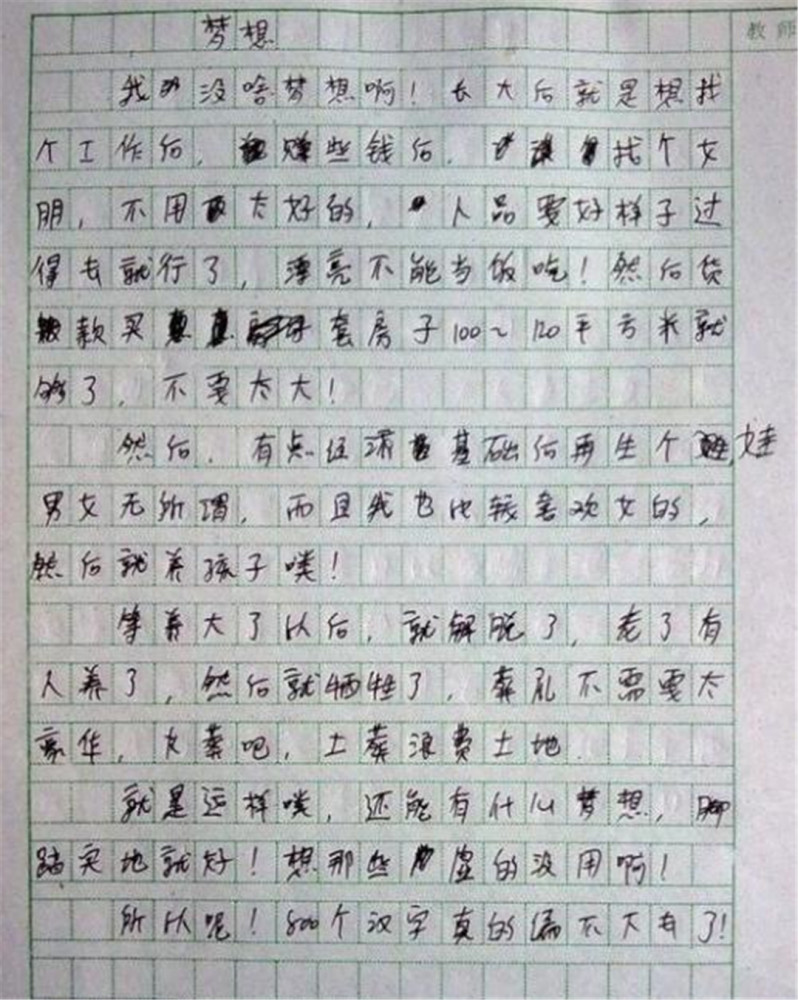 梦想
教师
我没啥梦想啊！长大后就是想找
个工作后，赚些钱后，找个女
朋，不用太好的，人品要好样子过
得去就行了，漂亮不能当饭吃！然后货
款买套房子100~120平方米就
够了，不要太大！
然后，有点经济基础后再生个娃
男女无所谓，而且我也比较喜欢女的，
然后就养孩子喽！
等养大了以后，就解脱了，老了有
人养了，然后就牺牲了，葬礼不需要太
豪华，火葬吧，土葬浪费土地.
就是这样喽，还能有什么梦想，脚
踏实地就好！想那些虚的没用啊！
所以呢！800个汉字真的编不下去了！